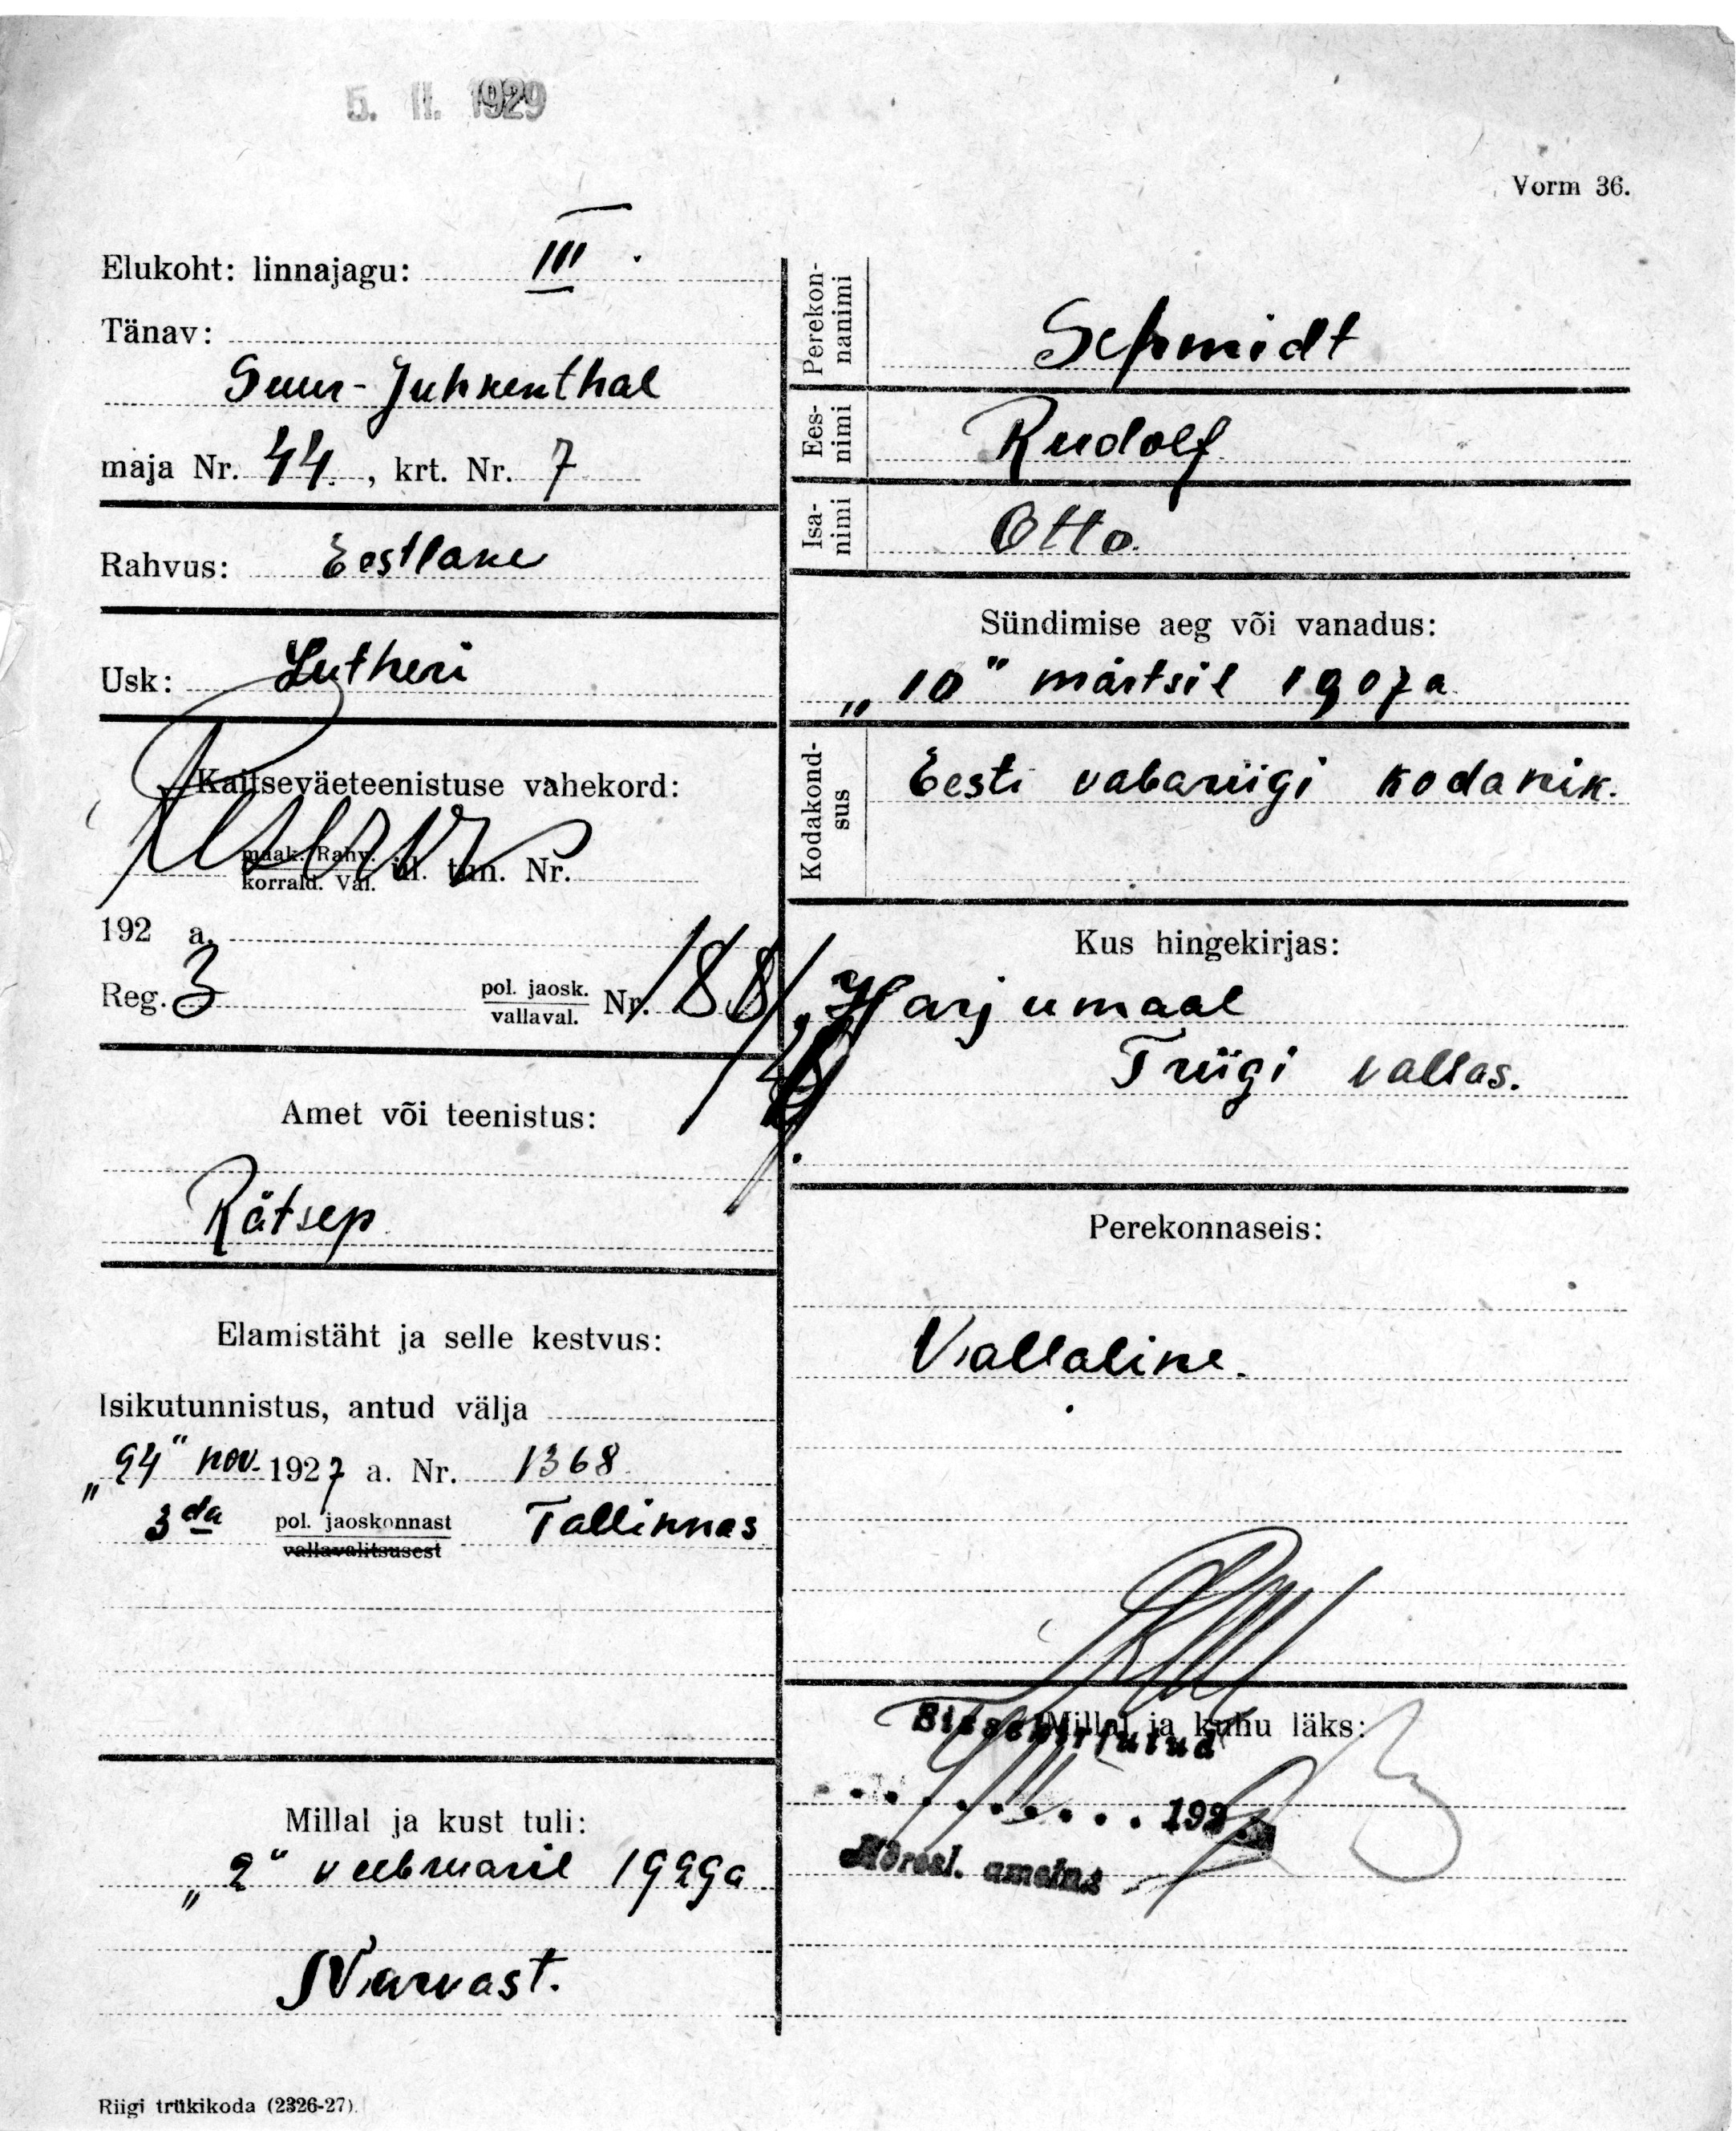 5. II. 1929
Vorm 36.
Elukoht: linnajagu: III
Tänav:
Suur-Juhkenthal
maja Nr. 44., krt. Nr. 7
Rahvus: Eestlane
Usk: Lutheri
Kaitseväeteenistuse vahekord:
Reserv
maak. Rahv.
korrald. Val. ül. tun. Nr.
192 a.
Reg. 3 pol. jaosk.
vallaval. Nr. 188
Amet või teenistus:
Rätsep
Elamistäht ja selle kestvus:
Isikutunnistus, antud välja
„24" nov. 1927 a. Nr. 1368
3da pol. jaoskonnast Tallinnas
vallavalitsusest
Millal ja kust tuli:
„2" veebruaril 1929a
Narvast.
Riigi trükikoda (2326-27).
Perekon-
nanimi Schmidt
Ees-
nimi Rudolf
Isa-
nimi Otto.
Sündimise aeg või vanadus:
„10" märtsil 1907a
Kodakond-
sus Eesti vabariigi kodanik.
Kus hingekirjas:
Harjumaal
Triigi vallas.
Perekonnaseis:
Vallaline.
Millal ja kuhu läks:
Sissekirjutud
192
Adressl. ametns